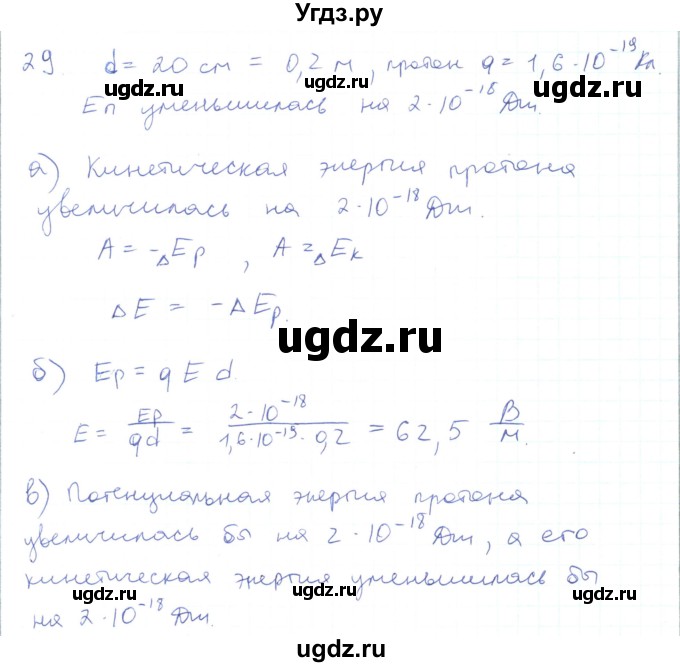 Угдз.ру
29. d = 20 см = 0,2 м, протон q = 1,6·10⁻¹⁹ Кл.
Еп уменьшилась на 2·10⁻¹⁸ Дж.
а) Кинетическая энергия протона
увеличилась на 2·10⁻¹⁸ Дж.
A = -ΔEp, A = ΔEk
ugdz.ru
ΔE = -ΔEp.
б) Ep = q E d.
E = Ep/qd = 2·10⁻¹⁸/1,6·10⁻¹⁹·0,2 = 62,5 В/м.
ugdz.ru
в) Потенциальная энергия протона
увеличилась бы на 2·10⁻¹⁸ Дж, а его
кинетическая энергия уменьшилась бы
ugdz.ru ugdz.ru
на 2·10⁻¹⁸ Дж.
ugdz.ru